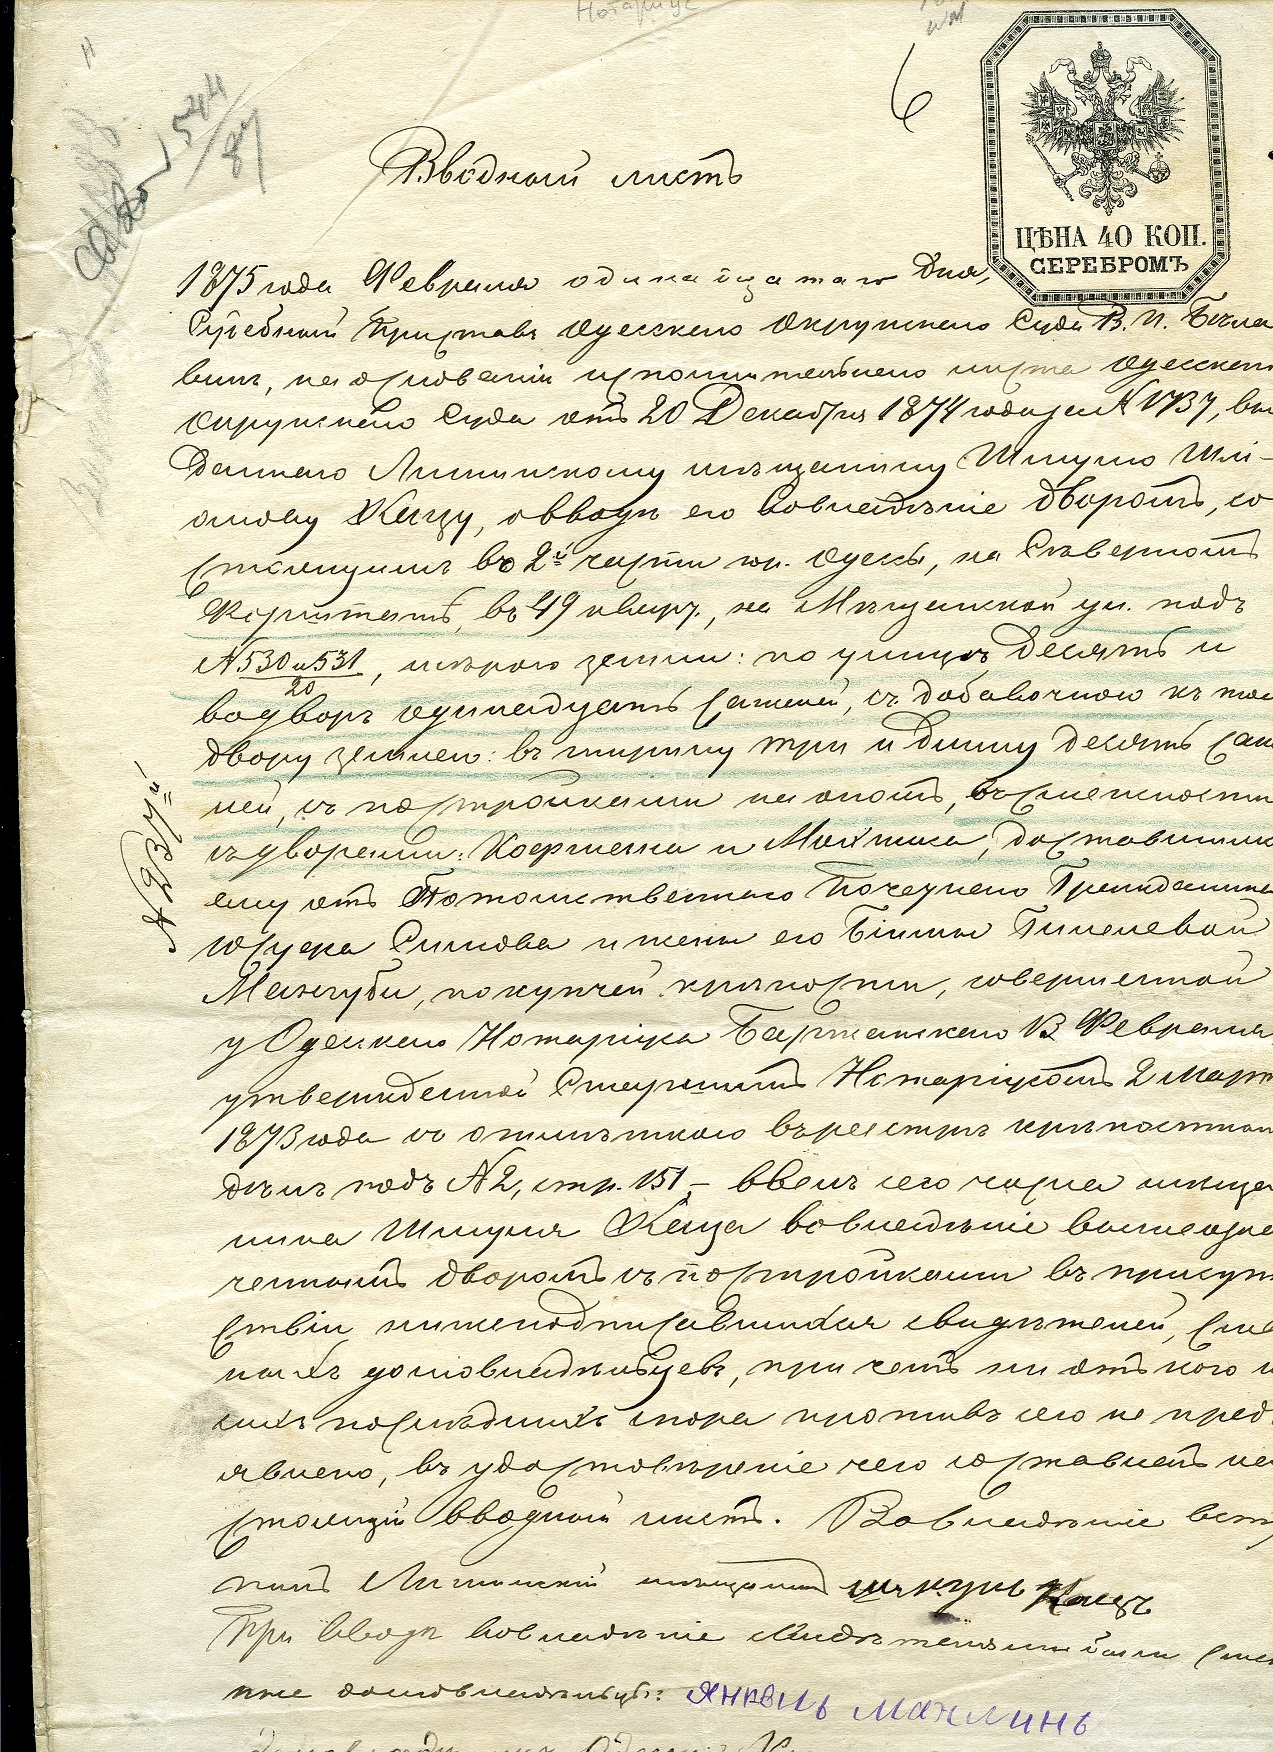 Нотаріус
6
544/87
ЦѢНА 40 КОП.
СЕРЕБРОМЪ
Вводный листъ
1875 года Февраля одинадцатаго дня,
Судебный Приставъ Одесскаго Окружнаго Суда В. П. Бѣла
винъ, на основаніи исполнительнаго листа Одесскаго
Окружнаго Суда отъ 20 Декабря 1874 года за N 1737, вы
даннаго мѣщанину Шмулю Шлі-
омову Кацу, о вводѣ его во владѣніе дворомъ, со
стоящимъ во 2й части гор. Одессы, на Сѣверномъ
Форштатѣ, въ 49 кварт., на Мѣщанской ул. подъ
N 530 и 531/20, мѣрою земли: по улицѣ десять и
во дворъ одинадцать саженей, съ добавочною къ тому
двору землею: въ ширину три и длину десять саж
ней, съ постройками на ономъ, въ смежности
съ дворами: и доставшимся
N 237й
ему отъ Потомственнаго Почетнаго Гражданина
Симова и жены его
Мангуби, по купчей крѣпости, совершенной
у Одесскаго Нотаріуса Баржанскаго 13 Февраля
утвержденной Старшимъ Нотаріусомъ 2 Март
1873 года съ отмѣткою въ реестрѣ крѣпостны
дѣлъ подъ N 2, стр. 151, – ввелъ сего числа мѣща
нина Шмуля Каца во владѣніе вышеозна
ченнымъ дворомъ съ постройками въ присут
ствіи нижеподписавшихся свидѣтелей, сме
ныхъ домовладѣльцевъ, при чемъ ни отъ кого и
ихъ послѣднихъ спора противъ сего не предъ
явлено, въ удостовѣреніе чего составленъ на
стоящій вводный листъ. Во владѣніе всту
пилъ мѣщанинъ Шмуль Кацъ
При вводѣ во владѣніе свидѣтелями были сме
ные домовладѣльцы: Янкель Махлинъ